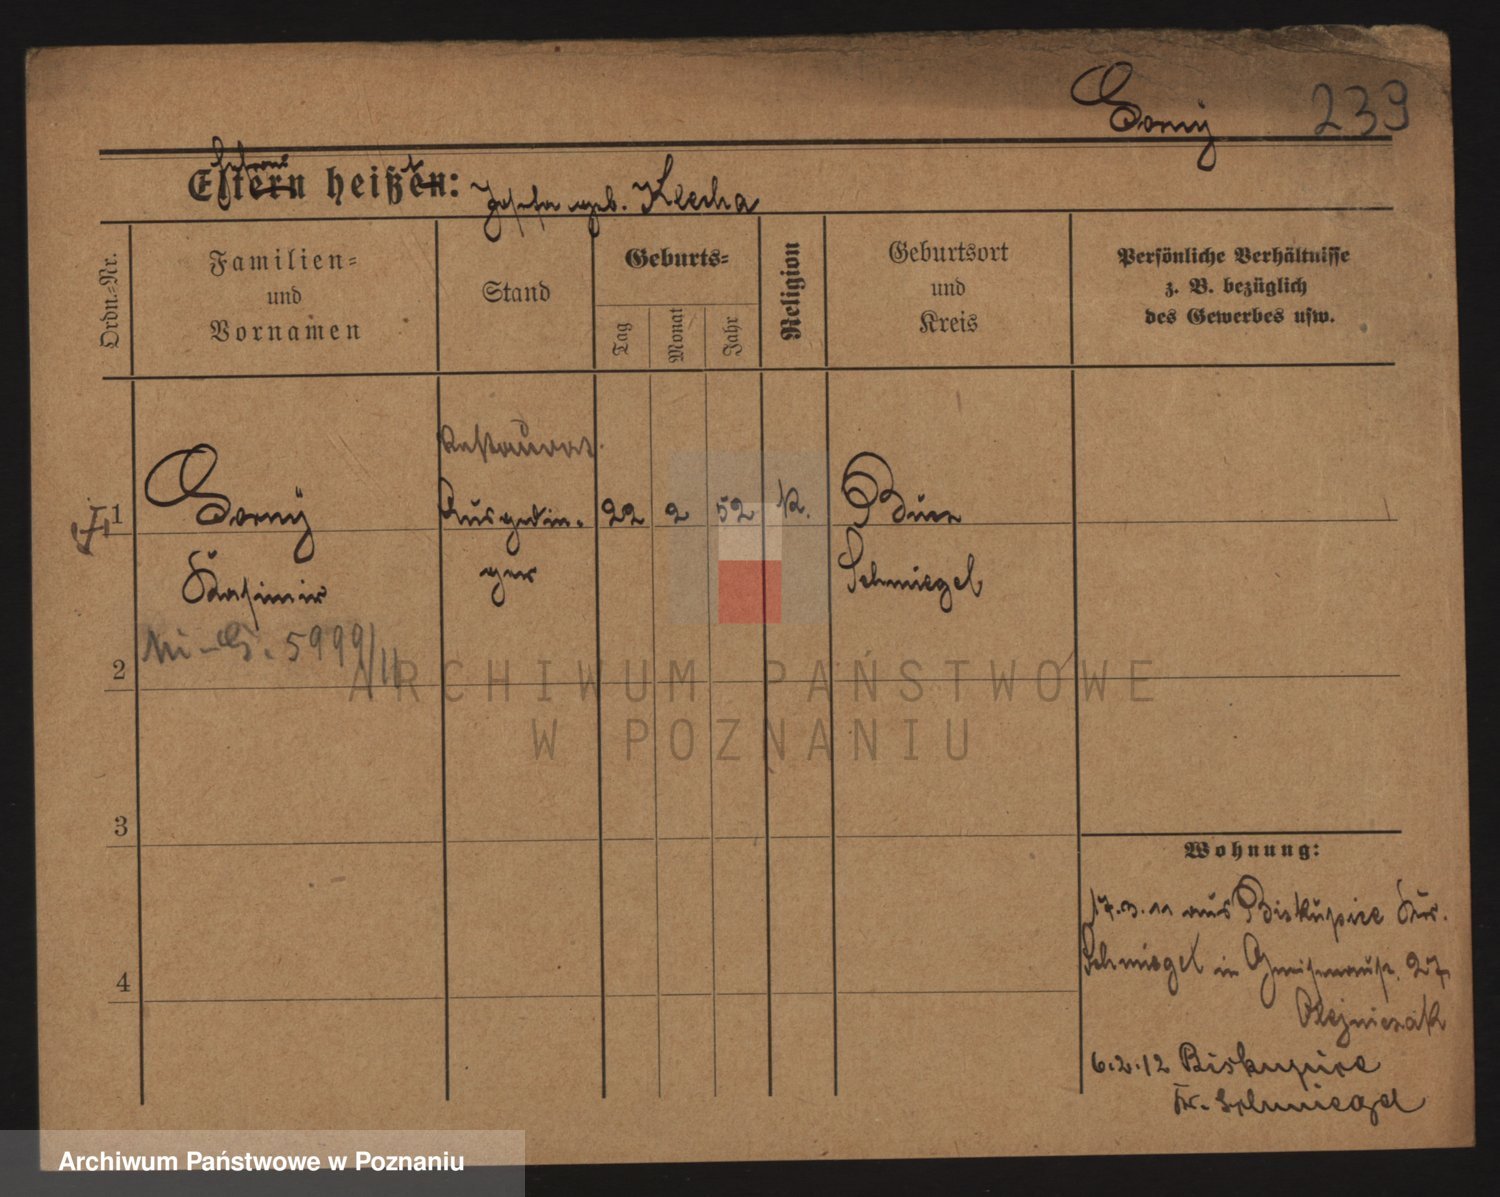 Gorny 239
Ehefrau
Eltern heißt en: Josefa geb. Klecha
Ordn.=Nr.
Familien=
und
Vornamen
Stand
Geburts=
Tag
Monat
Jahr
Religion
Geburtsort
und
Kreis
Persönliche Verhältnisse
z. B. bezüglich
des Gewerbes usw.
Restaurat.
1 Gorny Ausgedin- 22 2 52 k. Bucz
Kasimir ger Schmiegel
5999/11
2
3
4
Wohnung:
17.3.11 aus Biskupice Kr.
Schmiegel in Gneisenaustr. 27
Olejniczak
6.2.12 Biskupice
Kr. Schmiegel
ARCHIWUM PAŃSTWOWE
W POZNANIU
Archiwum Państwowe w Poznaniu